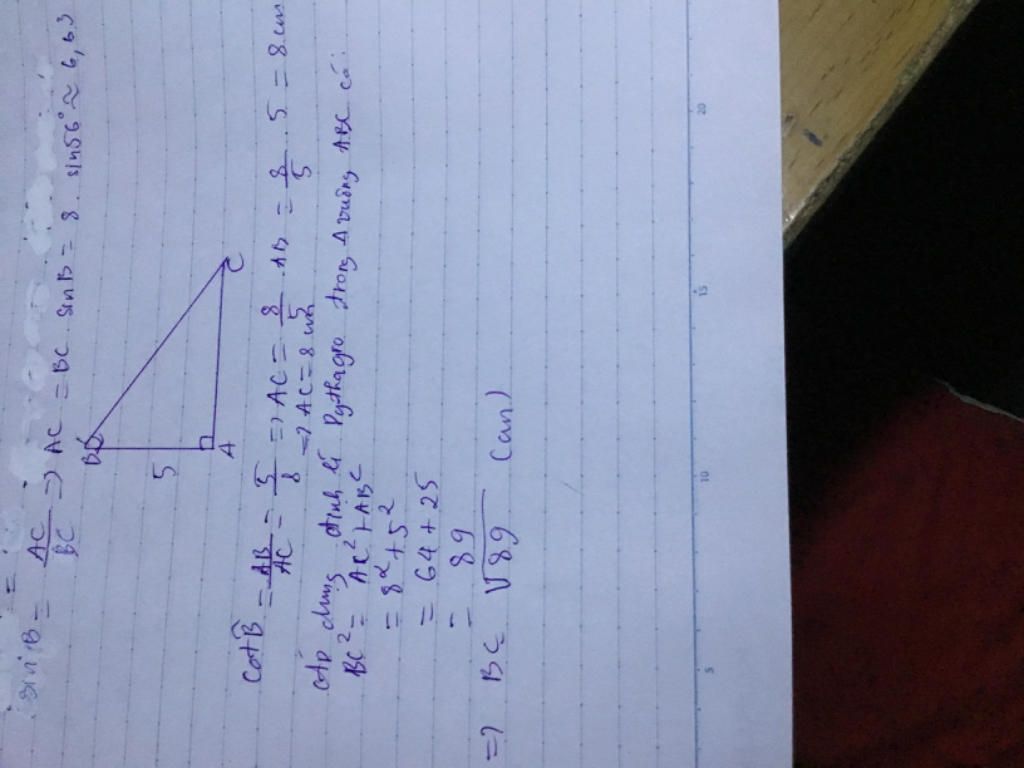 sin B = AC/BC => AC = BC sin B = 8 . sin 56° ≈ 6,63
B
5
A
C
cot B = AB/AC = 5/8 => AC = 8/5 . AB = 8/5 . 5 = 8 cm
=> AC = 8 cm
áp dụng định lí Pythagro trong Δ vuông ABC có:
BC² = AC² + AB²
= 8² + 5²
= 64 + 25
= 89
=> BC = √89 (cm)
5
10
15
20